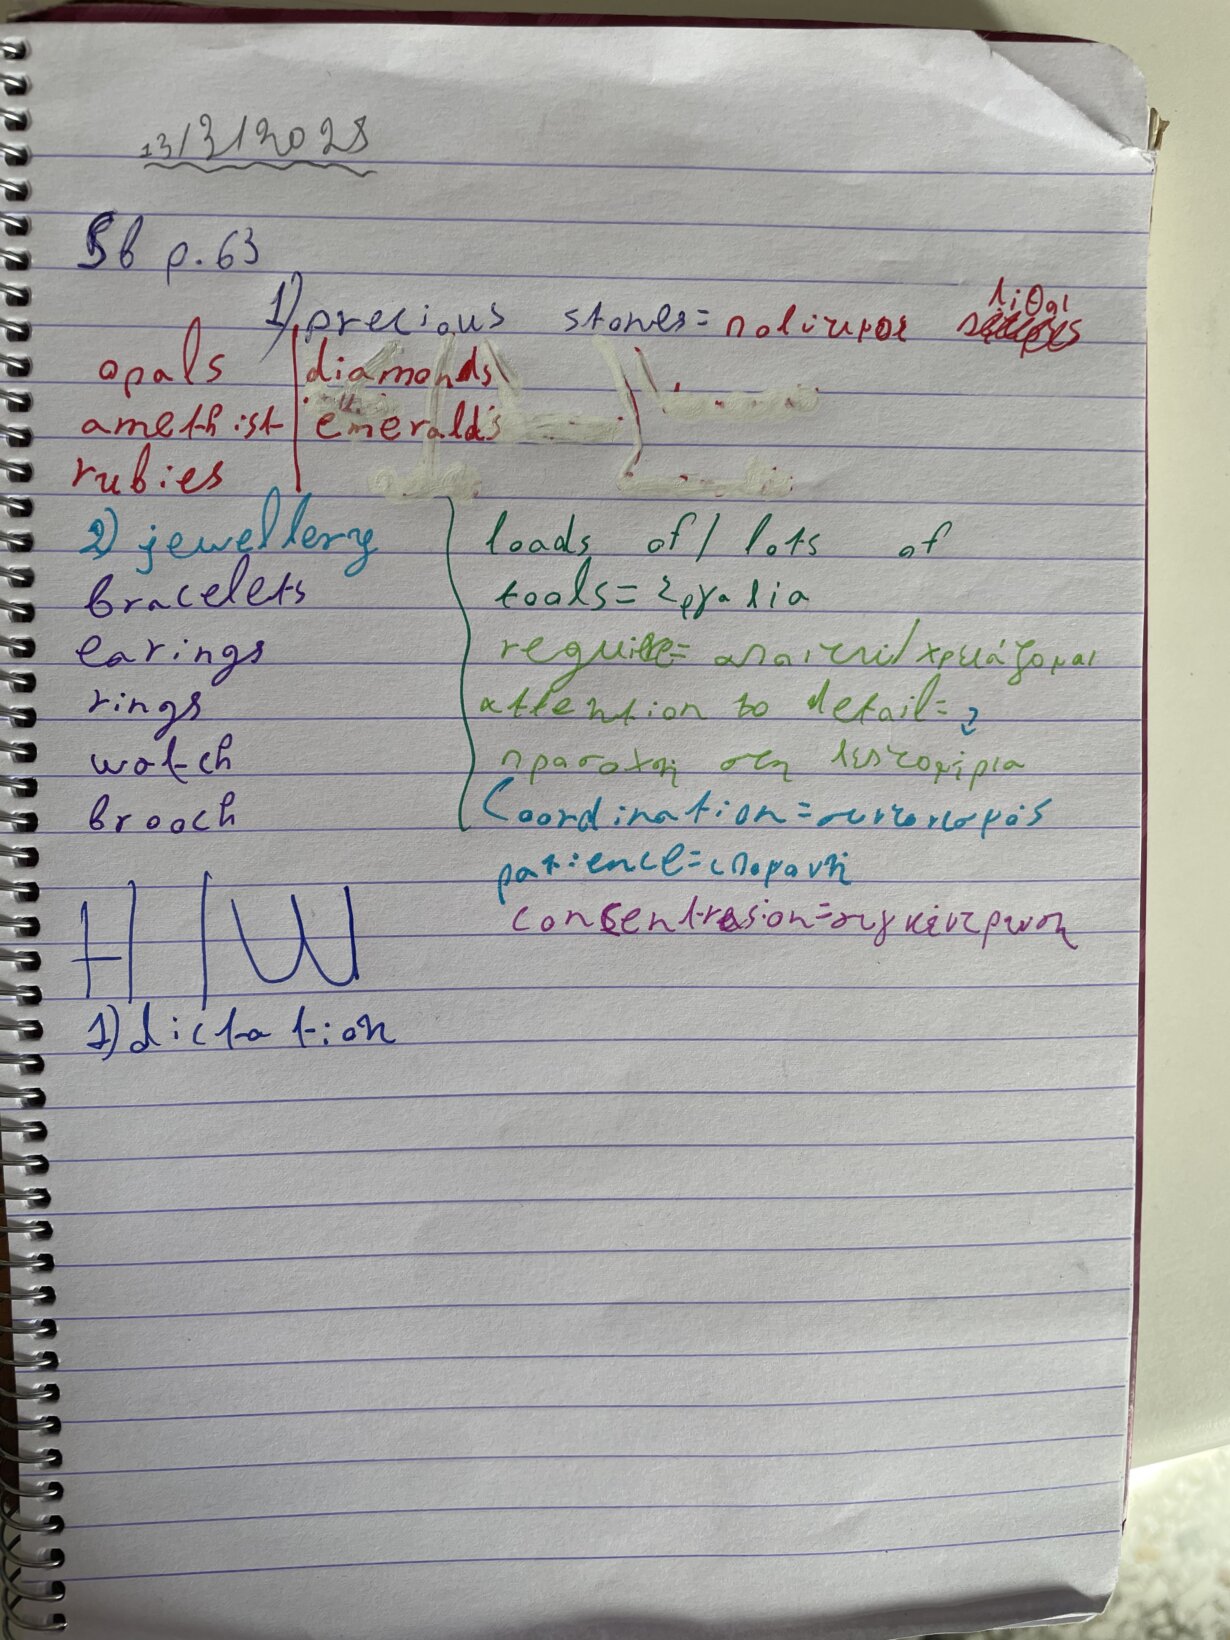 13/3/2025
Sb p.63
1) precious stones = πολίτιμοι λίθοι
opals | diamonds
amethist | emeralds
rubies
2) jewellery
bracelets
earings
rings
watch
brooch
loads of / lots of
tools = εργαλία
require = απαιτεί/χρειάζομαι
attention to detail = 2
προσοχή στη λεπτομέρια
Coordination = συντονισμός
patience = υπομονή
consentrasion = συγκέντρωση
H/W
1) dictation